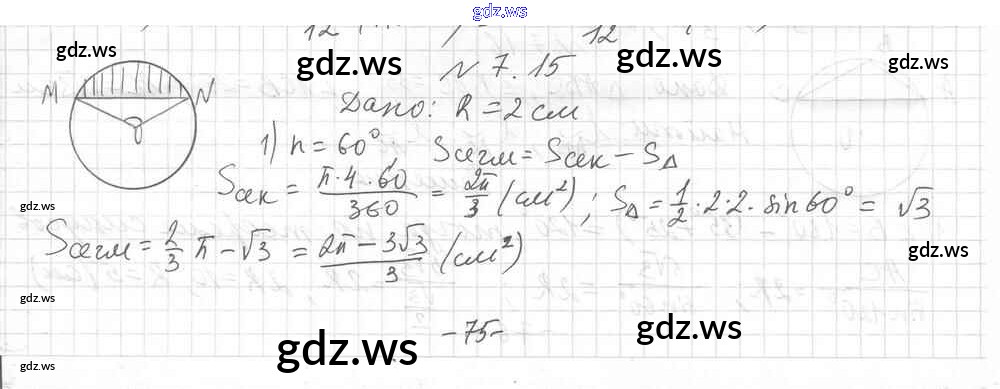 gdz.ws
12 12
gdz.ws gdz.ws gdz.ws gdz.ws
N 7.15
M N
Дано: R = 2 см
O
1) n = 60°, Sсегм = Sсек - S△
Sсек = π·4·60/360 = 2π/3 (см²); S△ = 1/2 · 2·2· sin 60° = √3
gdz.ws
Sсегм = 2/3 π - √3 = (2π - 3√3)/3 (см²)
gdz.ws
gdz.ws gdz.ws
-75-
gdz.ws
gdz.ws